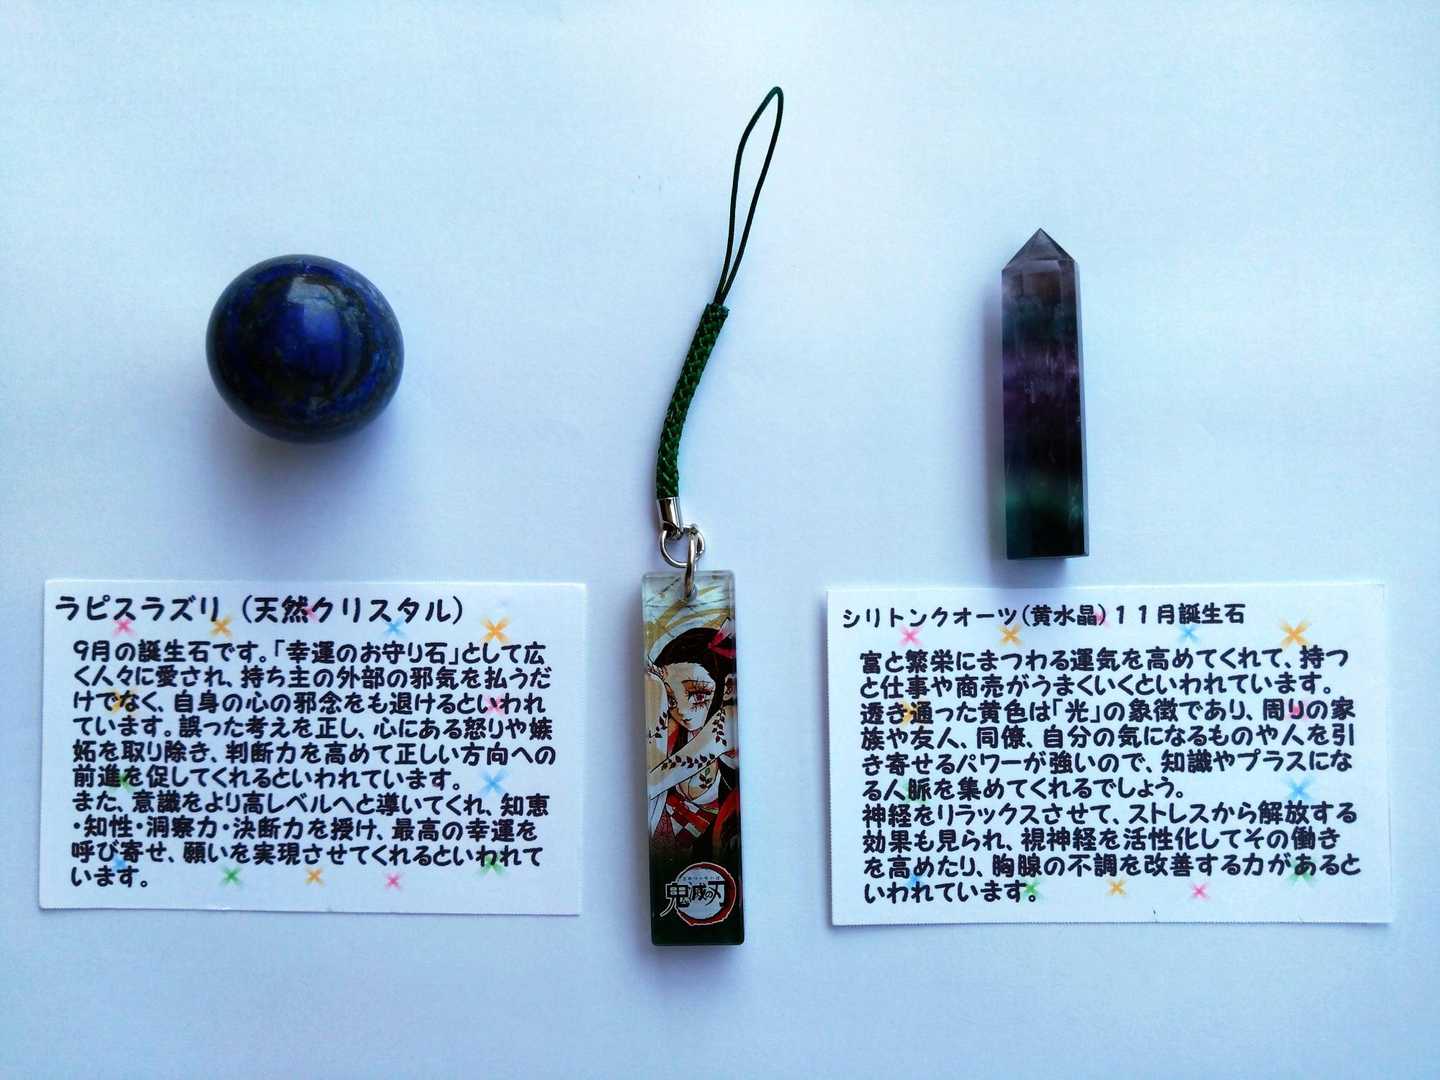 ラピスラズリ（天然クリスタル）
9月の誕生石です。「幸運のお守り石」として広
く人々に愛され、持ち主の外部の邪気を払うだ
けでなく、自身の心の邪念をも退けるといわれ
ています。誤った考えを正し、心にある怒りや嫉
妬を取り除き、判断力を高めて正しい方向への
前進を促してくれるといわれています。
また、意識をより高レベルへと導いてくれ、知恵
・知性・洞察力・決断力を授け、最高の幸運を
呼び寄せ、願いを実現させてくれるといわれて
います。
鬼滅の刃
シリトンクオーツ(黄水晶)１１月誕生石
富と繁栄にまつわる運気を高めてくれて、持つ
と仕事や商売がうまくいくといわれています。
透き通った黄色は「光」の象徴であり、周りの家
族や友人、同僚、自分の気になるものや人を引
き寄せるパワーが強いので、知識やプラスにな
る人脈を集めてくれるでしょう。
神経をリラックスさせて、ストレスから解放する
効果も見られ、視神経を活性化してその働き
を高めたり、胸腺の不調を改善する力があると
いわれています。